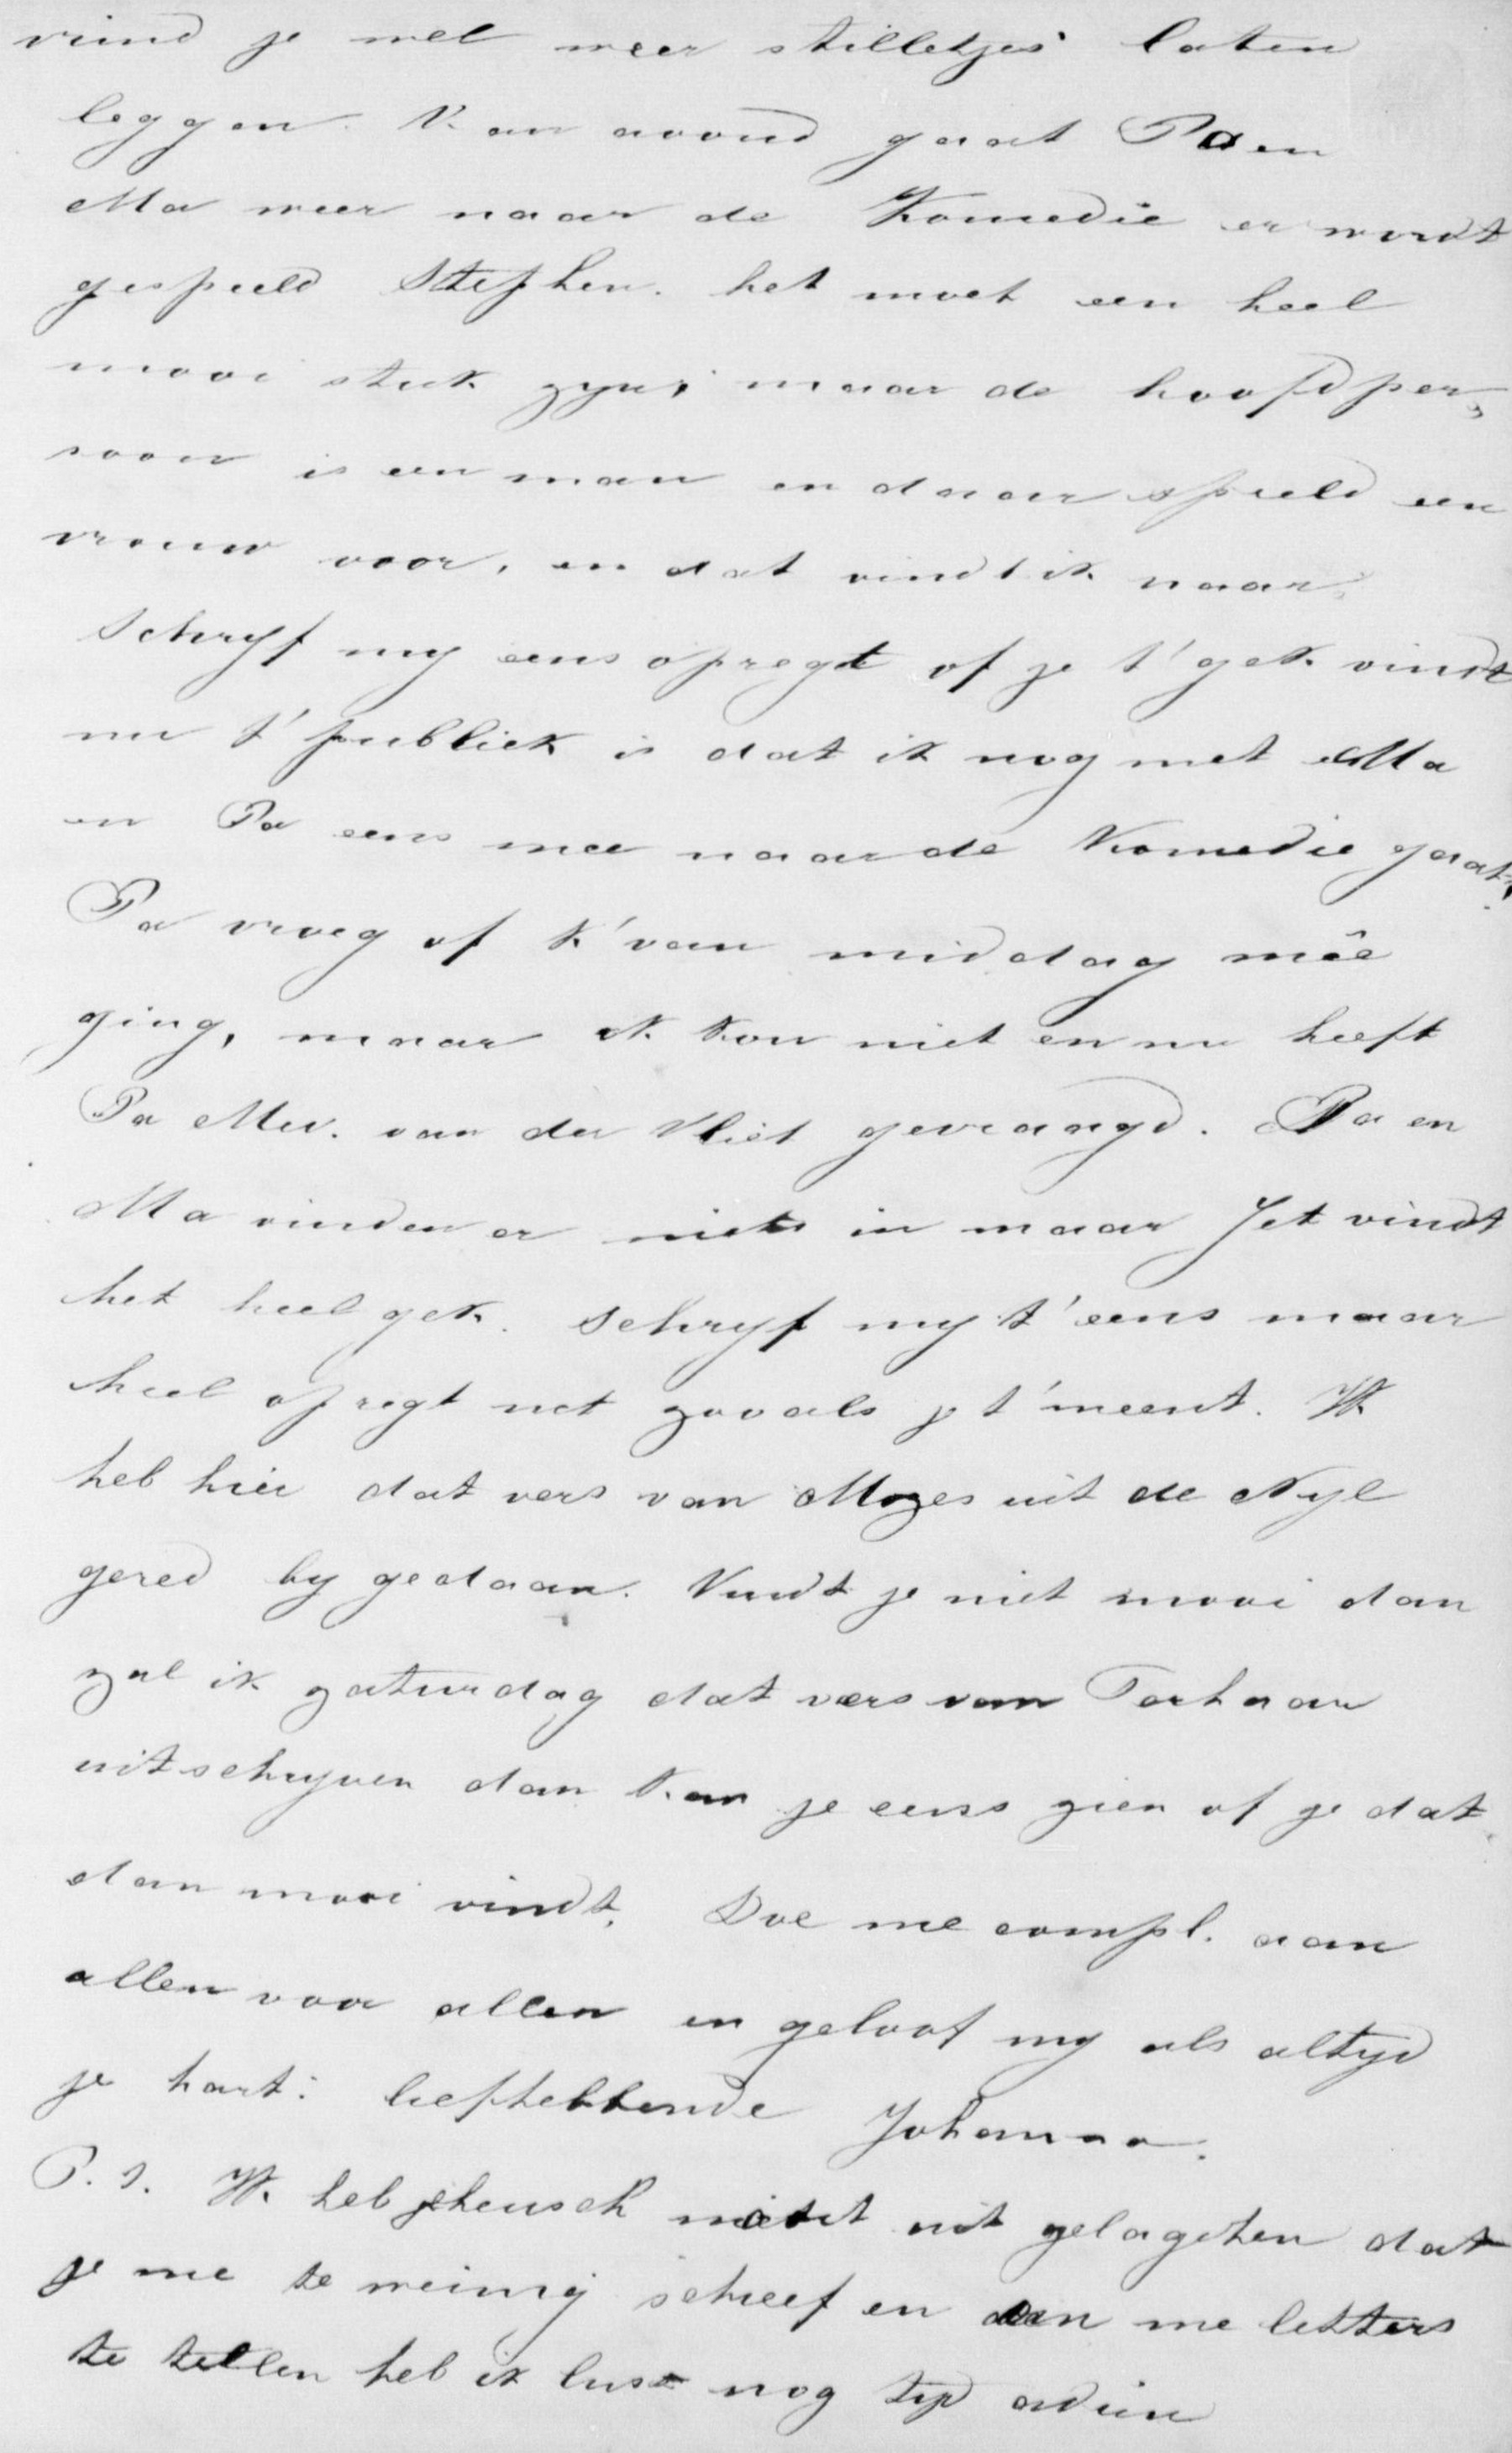 vind je wel weer stilletjes laten
leggen. Van avond gaat Pa en
Ma weer naar de Komedie er wordt
gespeeld Stephen. het moet een heel
mooi stuk zyn, maar de hoofdper„
soon is een man en daar speeld een
vrouw voor, en dat vindt ik naar.
Schryf my eens opregt of je t' gek vindt
nu t' publiek is dat ik nog met Ma
en Pa eens mee naar de Komedie gaat,
Pa vroeg of k' van middag mêe
ging, maar ik kon niet en nu heeft
Pa Mev. van der Vliet gevraagd. Pa en
Ma vinden er niets in maar Jet vindt
het heel gek. schryf my t' eens maar
heel opregt net zooals je t' meent. Ik
heb hier dat vers van Mozes uit de Nyl
gered by gedaan. Vindt je niet mooi dan
zal ik zaturdag dat vers van
uitschryven dan kan je eens zien of je dat
dan mooi vindt. Doe me compl. aan
allen voor allen en geloof my als altyd
je hart: liefhebbende Johanna.
P.S. Ik heb je heusch niet uit gelagchen dat
je me te weinig schreef en aan me letters
te tellen heb ik lust nog tyd adieu